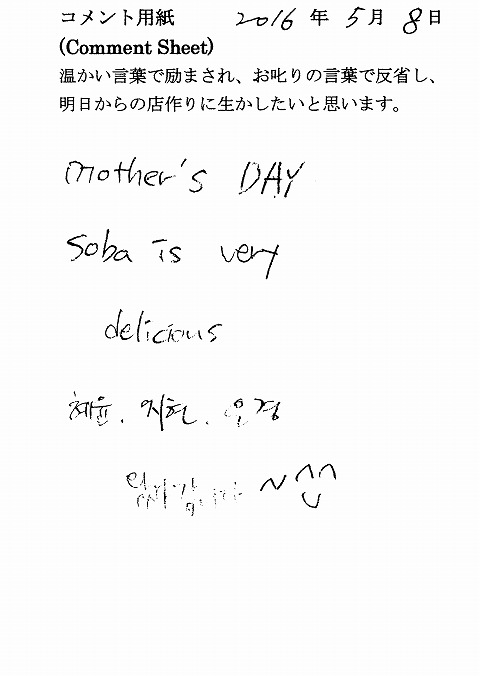 コメント用紙 2016 年 5 月 8 日
(Comment Sheet)
温かい言葉で励まされ、お叱りの言葉で反省し、
明日からの店作りに生かしたいと思います。
mother's DAY
Soba is very
delicious
혜윤. 지현. 은경